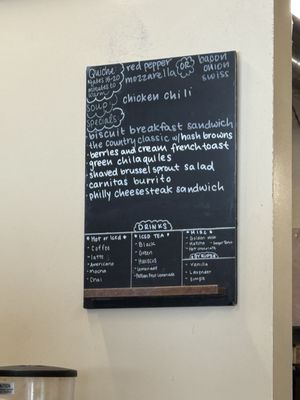 Quiche
takes 15-20
minutes to
warm
red pepper
mozzarella
OR
bacon
onion
swiss
soup
chicken chili
specials
- biscuit breakfast sandwich
- the country classic w/ hash browns
- berries and cream french toast
- green chilaquiles
- shaved brussel sprout salad
- carnitas burrito
- philly cheesesteak sandwich
DRINKS
Hot or Iced
- Coffee
- latte
- Americano
- Mocha
- Chai
ICED TEA
- Black
- Green
- Hibiscus
- Lemonade
- Passion Fruit Lemonade
MISC
- Golden Milk
- Matcha
- Hot chocolate
SYRUPS
- Vanilla
- Lavender
- Simple